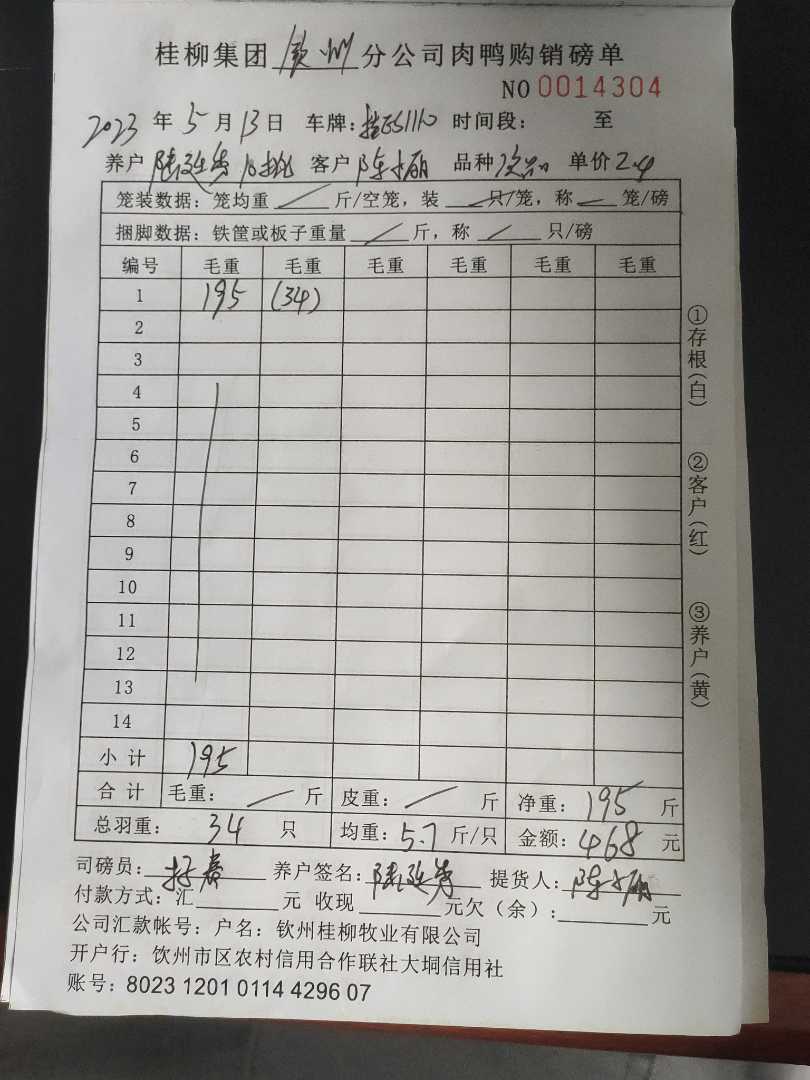 桂柳集团钦州分公司肉鸭购销磅单
NO 0014304
2023年5月13日 车牌: 时间段: 至
养户 陆延 客户 陈 品种 次品 单价 2.4
笼装数据：笼均重 / 斤/空笼，装 只/笼，称 笼/磅
捆脚数据：铁筐或板子重量 / 斤，称 / 只/磅
编号 毛重 毛重 毛重 毛重 毛重 毛重
1 195 (34)
2
3
4
5
6
7
8
9
10
11
12
13
14
小计 195
合计 毛重： / 斤 皮重： / 斤 净重：195 斤
总羽重：34 只 均重：5.7 斤/只 金额：468 元
司磅员： 养户签名：陆延 提货人：陈
付款方式：汇 元 收现 元欠（余）： 元
公司汇款帐号：户名：钦州桂柳牧业有限公司
开户行：饮州市区农村信用合作联社大垌信用社
账号：8023 1201 0114 4296 07
①存根(白)
②客户(红)
③养户(黄)